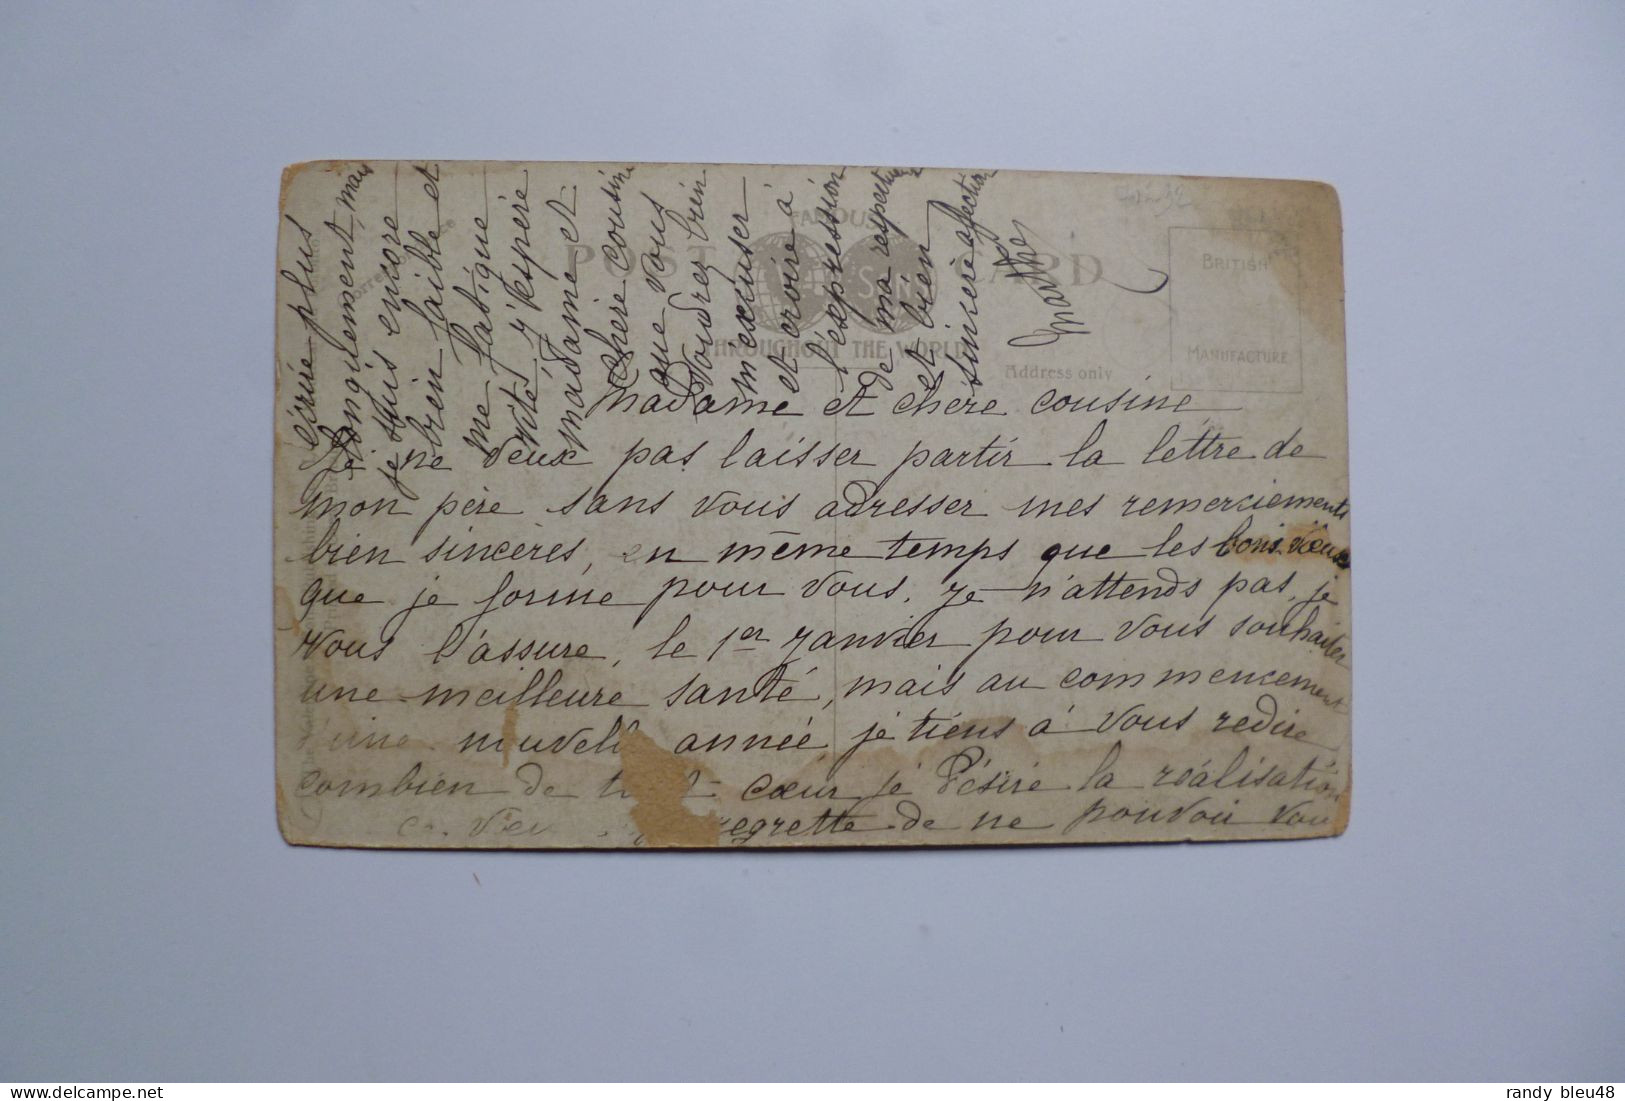 Madame et chère cousine
Je ne deux pas laisser partir la lettre de
mon père sans vous adresser mes remerciements
bien sincères, en même temps que les bons vœux
que je forme pour vous. Je n'attends pas, je
vous l'assure, le 1er Janvier pour vous souhaiter
une meilleure santé, mais au commencement
d'une nouvelle année je tiens à vous redire
combien de tout cœur je désire la réalisation
regrette de ne pouvoir vous
écrire plus
longuement, mais
je suis encore
bien faible et
me fatigue
vite, j'espère
madame et
chère cousine
que vous
voudrez bien
m'excuser
et croire à
l'expression
de ma respectueuse
et bien
sincère affection
Marthe
FAMOUS
POST CARD
THROUGHOUT THE WORLD
Address only
BRITISH
MANUFACTURE
randy bleu48